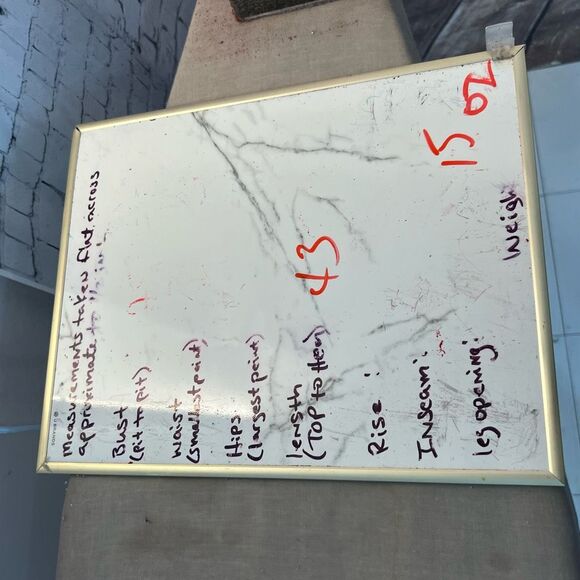 measurements taken flat across
approximate to the
Bust
(Pit to pit)
Waist
(smallest point)
Hips
(largest point)
Length
(TOP to Hem) 43
Rise:
Inseam:
leg opening:
Weigh 15 oz